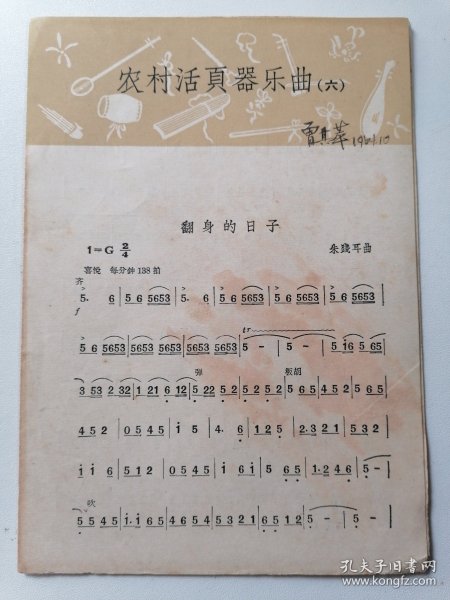 农村活頁器乐曲(六)
1961.10
翻身的日子
1=G 2/4
朱践耳曲
喜悅 每分鈡138拍
齐
5. 6 | 5 6 5653 | 5 6 5653 | 5. 6 | 5 6 5653 | 5 6 5653 | 5 6 5653 |
f
tr
5 6 5653 | 5 6 5653 | 5653 5653 | 5653 5653 | 5 - | 5 - | 5 i6 | 5 65 |
弹 板胡
3 53 | 2 32 | 1 21 | 6 12 | 5 22 | 5 2 | 5 2 5 2 | 5 6 5 | 4 5 2 | 5 6 5 |
4 5 2 | 0 5 4 5 | i 5 | 4. 6 | 1 2 5 | 2.3 2 1 | 5 3 2 |
i i 6 | 5 1 2 | 0 5 4 5 | i 6 1 | 5 6 5 | 1.2 4 6 | 5 - |
吹
5 5 4 5 | 1.1 6 5 | 4 6 5 4 | 5 3 2 1 | 6.5 6 2 | 5 - | 5 - |
孔夫子旧书网
www.kongfz.com